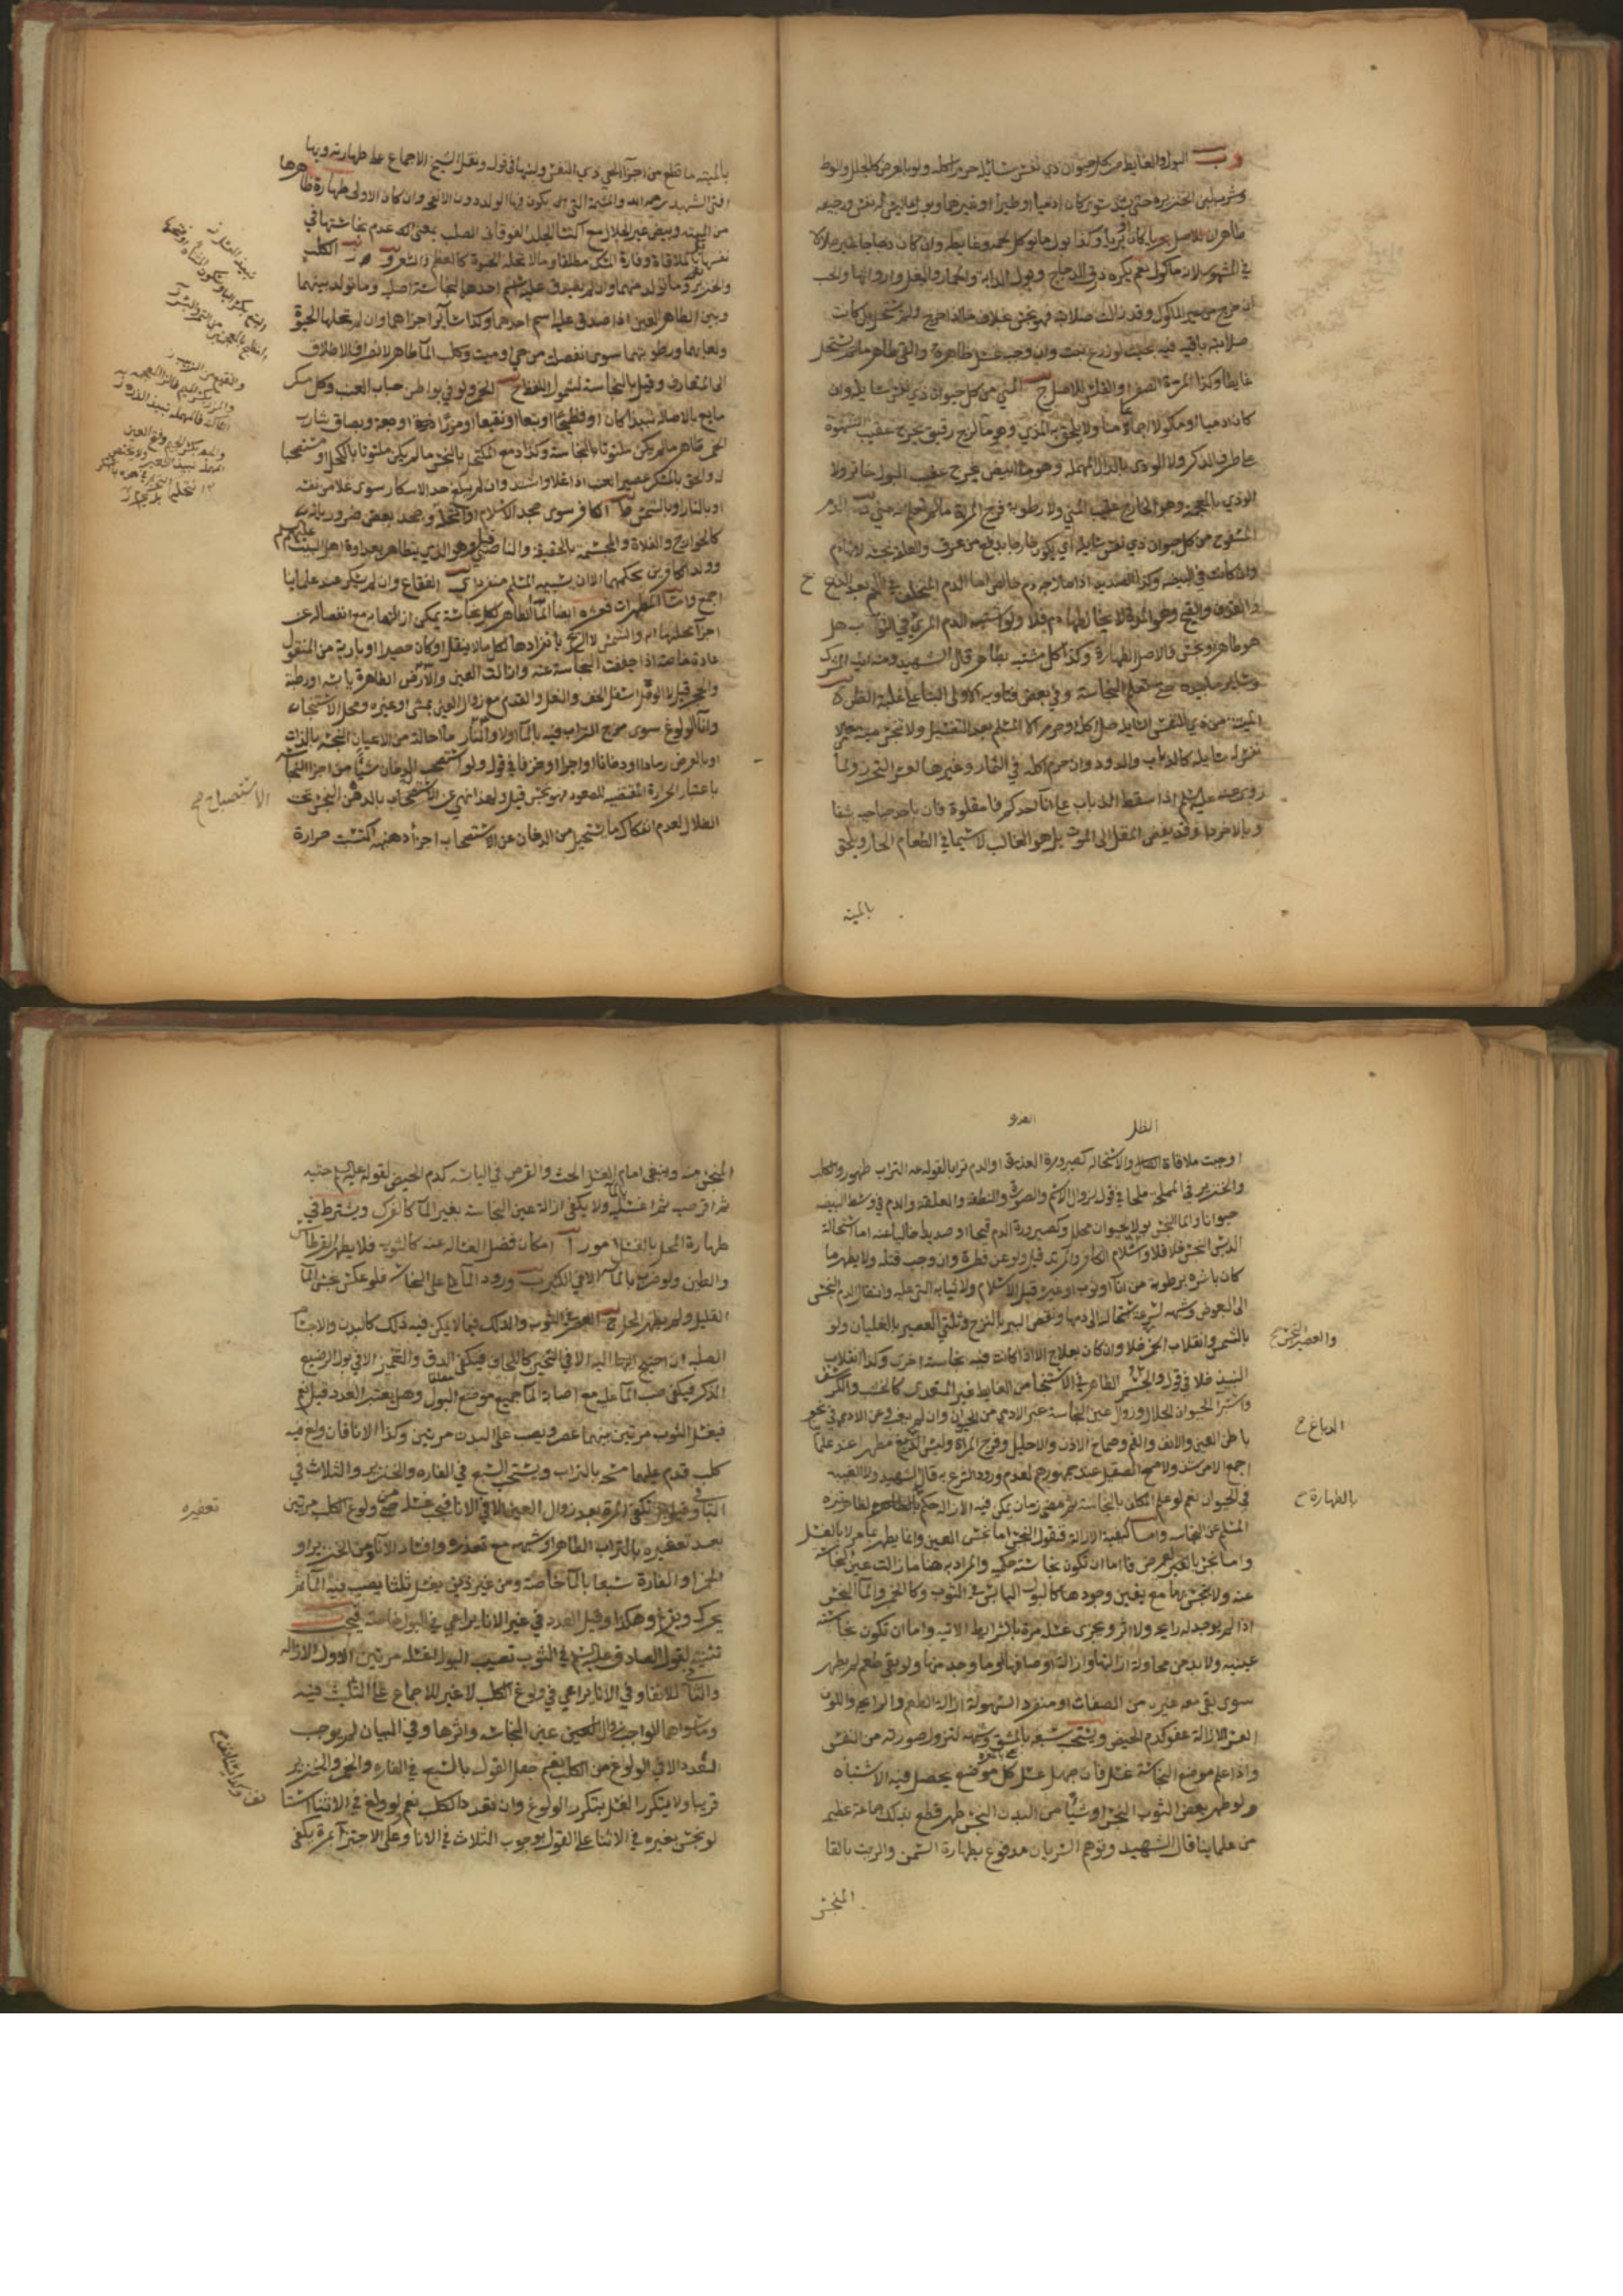 البول والغايط من كل حيوان ذي نفس سائلة حرم اكله ولو بالعرض كالجلال والموطو
وشرب لبن الخنزيرة حتى يشتد سواء كان ادميا او طيرا او غيرهما وبول ما ليس له نفس ورجيعه
طاهران للاصل وكذا بول مايوكل لحمه وغايطه وان كان دجاجا غير جلالا
في المشهور لانه ماكول نعم يكره ذرق الدجاج وبول الدابة والحمار والبغل وارواثها والحب
ان خرج من غير الماكول وقد زالت صلابته فهو نجس بخلاف ما اذا خرج ولم يستحل بل كانت
صلابته باقية فيه بحيث لو زرع نبت وان وجب غسل ظاهره والقي طاهر ما لم يستحل
غايطا وكذا المرة الصفرا والقلس للاصل ج المني من كل حيوان ذي نفس سايلة وان
كان ادميا او ماكولا اجماعا منا ولا يلحق به المذي وهو ماء لزج رقيق يخرج عقيب الشهوة
على طرف الذكر ولا الودي بالدال المهملة وهو ماء ابيض يخرج عقيب البول خاثر ولا
الوذي بالمعجمة وهو الخارج عقيب المني ولا رطوبة فرج المراة مالم تعلم انه مني د الدم
المسفوح من كل حيوان ذي نفس سايلة اي يكون خارجا بدفع من عرق والعلقة نجسة لانها دم
وان كانت في البيضة وكذا الصديد اذا مازجه دم خالص اما الدم المتخلف في اللحم بعد الذبح
و القذف والقيح وهي المدة لا يخالطها دم فلا ولو اشتبه الدم المرئي في الثوب هل
هو طاهر او نجس فالاصل الطهارة وكذا كل مشتبه بطاهر قال الشهيد ومنه ايدي المشرك
وساير ما بيده حتى تعلم النجاسة وفي بعض فتاويه الاولى البنا على غلبة الظن ه
الميتة من ذي النفس السايلة حل اكله او حرم الا المسلم بعد التغسيل ولا تنجس ميتة غير ذي
نفس سايلة كالذباب والدود وان حرم اكله في الثمار وغيرها لعسر التحرز ولما
روي عنه عليه السلم اذا سقط الذباب على اناء احدكم فامقلوه فان باحد جناحيه شفا
وبالاخر داء وقد يفضي المقل الى الموت بل هو الغالب لا سيما في الطعام الحار ويلحق
بالميتة
بالميتة ما قطع من اجزاء الحي ذي النفس ولبنها في قول ونقل الشيخ الاجماع على طهارته وبها
افتى الشهيد رحمه الله والمشيمة التي يكون فيها الولد دون الانفحة وان كان الاولى طهارة ظاهرها
من الميتة وبيض غير الجلال مع اكتسا الجلد الفوقاني الصلب بمعنى انه عدم نجاستها في
نفسها بالملاقاة وفارة المسك مطلقا وما لا تحله الحيوة كالعظم والشعر و ز الكلب
والخنزير وماتولد منهما وان لم يصدق عليه اسم احدهما لنجاسة اصليه وماتولد بينهما
وبين الطاهر العين اذا صدق عليه اسم احدهما وكذا ساير اجزاهما وان لم تحلها الحيوة
ولعابهما ورطوبتهما سوى انفصلت من حي او ميت وكلب الماء طاهر لانصراف الاطلاق
الى المتعارف وقيل بالنجاسة لشمول اللفظ ح الخمر ولو في بواطن حباب العنب وكل مسكر
مايع بالاصالة نبيذا كان او فضيخا او بتعا او نقيعا او مزرا او جعة وبصاق شارب
الخمر طاهر مالم يكن متلوثا بالنجاسة وكذا دمع المكتحل بالنجس مالم يكن متلوثا بالكحل او مستصحبا
له والحق بالمسكر عصير العنب اذا غلا واشتد وان لم يبلغ حد الاسكار سوى غلا من نفسه
او بالنار او بالشمس ط الكافر سوى جحد الاسلام او انتحله وجحد بعض ضرورياته
كالخوارج والغلاة والمجسمة بالحقيقة والناصبي وهو الذي يتظاهر بعداوة اهل البيت عليهم السلم
وولد الكافرين بحكمهما الا ان يسبيه المسلم منفردا ي الفقاع وان لم يسكر عند علماينا
اجمع واما المطهرات فعشرة ايضا الماء الطاهر لكل نجاسة يمكن ازالتها به مع انفصاله عن
اجزاء محلها به والشمس لا الريح بانفرادها لكل مالا ينقل او كان حصيرا او بارية من المنقول
عادة خاصة اذا جففت النجاسة عنه وازالت العين والارض الطاهرة يابسة او رطبة
والحجر قيل لا الوحل اسفل الخف والنعل والقدم مع زوال العين بمشي او غيره ومحل الاستنجاء
واناء الولوغ سوى مزج التراب فيه بالماء اولا والنار ما احالته من الاعيان النجسة بالذات
او بالعرض رمادا او دخانا او اجرا او خزفا في قول ولو استصحب الدخان شيئا من اجزا النجاسة
باعتبار الحرارة المقتضية للصعود فهو نجس قيل ولهذا نهي عن الاستصباح بالدهن النجس تحت
الظلال لعدم انفكاك مايستحيل من الدخان عن الاستصحاب اجزاء دهنية اكتسبت حرارة
نبيذ العسل
الاستصباح صح
الظل
اوجبت ملاقاة والاستحالة كصيرورة العذرة او الدم ترابا لقوله عم التراب طهور والكلب
والخنزير في المملحة ملحا في قول لزوال الاسم والصورة والنطفة والعلقة والدم في وسط البيضة
حيوانا والماء النجس بولا لحيوان محلل وكصيرورة الدم قيحا او صديدا خاليا عنه اما استحالة
الدبس النجس خلا فلا واسلام الكافر والمرتد قيل ولو عن فطرة وان وجب قتله ولا يطهر ما
كان باشره برطوبة من اناء او ثوب او غيره قبل الاسلام ولا ثيابه التي عليه وانتقال الدم النجس
الى البعوض وشبهه لسرعة استحالته الى دمها ونقص البير بالنزح وثلثي العصير بالغليان ولو
بالشمس وانقلاب الخمر خلا وان كان بعلاج الا اذا كانت فيه نجاسة اخرى وكذا انقلاب
النبيذ خلا في قول والجسم الطاهر في الاستنجا من الغايط غير المتعدي كالخشب والكرسف
واستبراء الحيوان الجلال وزوال عين النجاسة عن غير الادمي من الحيوان وان لم يغب وعن الادمي في نحو
باطن العين والانف والفم وصماخ الاذن والاحليل وفرج المراة وليس الدبغ مطهرا عند علماينا
اجمع الا من شذ ولا مسح الصقيل عند جمهورهم لعدم ورود الشرع به قال الشهيد ولا الغيبة
في الحيوان نعم لو علم المكلف بالنجاسة ثم مضى زمان يمكن فيه الازالة حكم بالطهارة لظاهر تنزه
المسلم عن النجاسة واما كيفية الازالة فنقول النجس اما نجس العين وانما يطهر بما مر لا بالغسل
واما نجس بالعرض فاما ان تكون نجاسته حكمية والمراد به هنا ما زالت عين النجاسة
عنه ولا تحس بها مع يقين وجودها كالبول اليابس في الثوب وكالخمر والماء النجس
اذا لم يوجد له رايحة ولا اثر ويجزي غسله مرة بالشرايط الاتية واما ان تكون نجاسته
عينية ولابد من محاولة ازالتها وازالة اوصافها او ما وجد منها ولو بقي طعم لم يطهر
سوى بقي معه غيره من الصفات او منفردا لسهولة ازالة الطعم والرايحة واللون
العسر الازالة عفو كدم الحيض ويستحب صبغه بالمشق وشبهه لتزول صورته من النفس
واذا علم موضع النجاسة غسل فان جهل غسل كل موضع يحصل فيه الاشتباه
ولو طهر بعض الثوب النجس او شيئا من البدن النجس طهر قطع بذلك جماعة عظيم
من علماينا قال الشهيد وتوهم السريان مدفوع بطهارة السمن والزيت بالقا
المنجس
والعصير النجس صح
الدباغ ح
بالطهارة ح
المنجس منه وينبغي امام الغسل الحت والقرص في اليابسة كدم الحيض لقوله عليه السلم حتيه
ثم اقرصيه ثم اغسليه بالماء ولا يكفي ازالة عين النجاسة بغير الماء كالفرك ويشترط في
طهارة المحل بالغسل امور ا امكان فصل الغسالة عنه كالثوب فلا يطهر القرطاس
والطين ولو ضرب بالماء الا في الكثير ب ورود الماء على النجاسة فلو عكس نجس الماء
القليل ولم يطهر المحل ج العصر في الثوب والدلك فيما لا يمكن فيه ذلك كالبدن والاجسام
الصلبة ان احتيج اليه الا في الثخين كاللحاف فيكفي الدق والتغميز الا في بول الرضيع
الذكر فيكفي صب الماء عليه مع اصابة الماء جميع موضع البول وهل يعتبر العدد قيل نعم
فيغسل الثوب مرتين بينهما عصر ويصب على البدن مرتين وكذا الاناء فان ولغ فيه
كلب قدم عليهما مسحه بالتراب ويستحب السبع في الفارة والخنزير والثلاث في
الباقي وقيل بل تكفي المرة بعد زوال العين الا في الاناء فيجب غسله من ولوغ الكلب مرتين
بعد تعفيره بالتراب الطاهر او شبهه مع تعذره وافساد الاناء ومن الخنزير او
الخمر او الفارة سبعا بالماء خاصة ومن غير ذلك يغسل ثلثا يصب فيه الماء ثم
يحرك ويفرغ وهكذا وقيل العدد في غير الاناء يراعى في البول خاصة فيجب
تثنيته لقول الصادق عليه السلم في الثوب تصيب البول اغسله مرتين الاول للازالة
والثاني للانقا وفي الاناء يراعى في ولوغ الكلب لا غير للاجماع على التثليث فيه
وما سواهما الواجب زوال العين عين النجاسة واثرها وفي البيان لم يوجب
التعدد الا في الولوغ من الكلب نعم جعل القول بالسبع في الفارة والخمر والخنزير
قريبا ولا يتكرر الغسل بتكرر الولوغ وان تعدد الكلب نعم لو ولغ في الاثناء استانف
لو نجس بغيره في الاثناء على القول بوجوب الثلاث في الاناء وعلى الاجتزاء بمرة يكفي
تعفيره